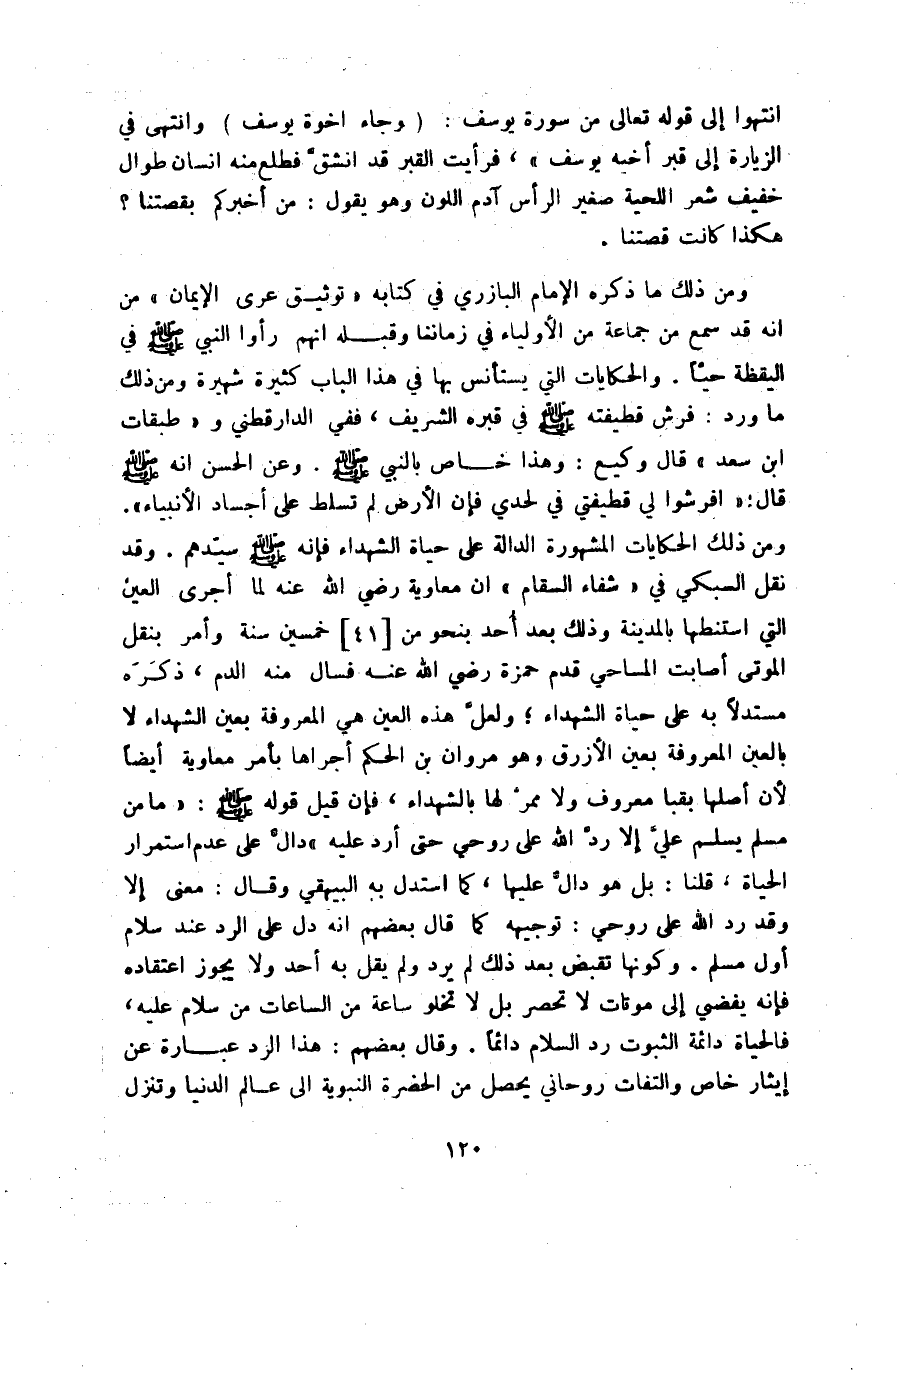 انتهوا إلى قوله تعالى من سورة يوسف : ( وجاء اخوة يوسف ) وانتهى في
الزيارة إلى قبر أخيه يوسف » ، فرأيت القبر قد انشقّ فطلع منه انسان طوال
خفيف شعر اللحية صغير الرأس آدم اللون وهو يقول : من أخبركم بقصتنا ؟
هكذا كانت قصتنا .
ومن ذلك ما ذكره الإمام البازري في كتابه « توثيق عرى الإيمان » من
انه قد سمع من جماعة من الأولياء في زماننا وقبله انهم رأوا النبي ﷺ في
اليقظة حيّاً . والحكايات التي يستأنس بها في هذا الباب كثيرة شهيرة ومن ذلك
ما ورد : فرش قطيفته ﷺ في قبره الشريف ، ففي الدارقطني و « طبقات
ابن سعد » قال وكيع : وهذا خاص بالنبي ﷺ . وعن الحسن انه ﷺ
قال : « افرشوا لي قطيفتي في لحدي فإن الأرض لم تسلط على أجساد الأنبياء » .
ومن ذلك الحكايات المشهورة الدالة على حياة الشهداء فإنه ﷺ سيّدهم . وقد
نقل السبكي في « شفاء السقام » ان معاوية رضي الله عنه لما أجرى العين
التي استنطها بالمدينة وذلك بعد أُحد بنحو من [٤١] خمسين سنة وأمر بنقل
الموتى أصابت المساحي قدم حمزة رضي الله عنه فسال منه الدم ، ذكَرَه
مستدلاً به على حياة الشهداء ؛ ولعلّ هذه العين هي المعروفة بعين الشهداء لا
بالعين المعروفة بعين الأزرق وهو مروان بن الحكم أجراها بأمر معاوية أيضاً
لأن أصلها بقبا معروف ولا ممرّ لها بالشهداء ، فإن قيل قوله ﷺ : « ما من
مسلم يسلم عليّ إلا ردّ الله على روحي حتى أرد عليه » دالّ على عدم استمرار
الحياة ، قلنا : بل هو دالّ عليها ، كما استدل به البيهقي وقال : معنى إلا
وقد رد الله على روحي : توجيهه كما قال بعضهم انه دل على الرد عند سلام
أول مسلم . وكونها تقبض بعد ذلك لم يرد ولم يقل به أحد ولا يجوز اعتقاده
فإنه يفضي إلى موتات لا تحصر بل لا تخلو ساعة من الساعات من سلام عليه ،
فالحياة دائمة الثبوت رد السلام دائماً . وقال بعضهم : هذا الرد عبارة عن
إيثار خاص والتفات روحاني يحصل من الحضرة النبوية الى عالم الدنيا وتنزل
١٢٠